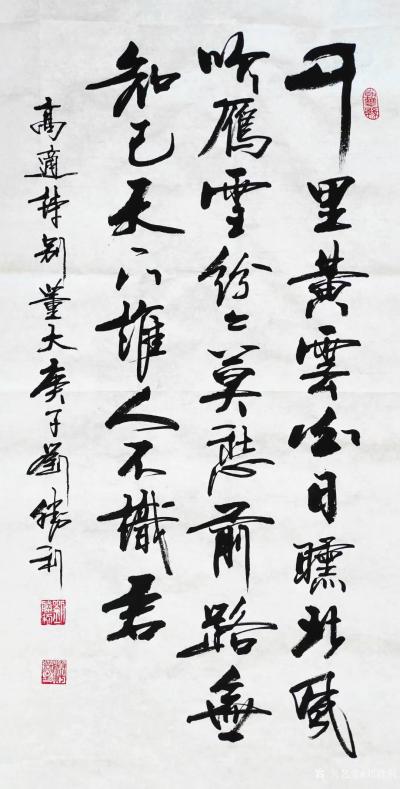 千里黃雲白日曛北風
吹鴈雪紛々莫愁前路無
知己天下誰人不識君
高適詩别董大庚子劉勝利